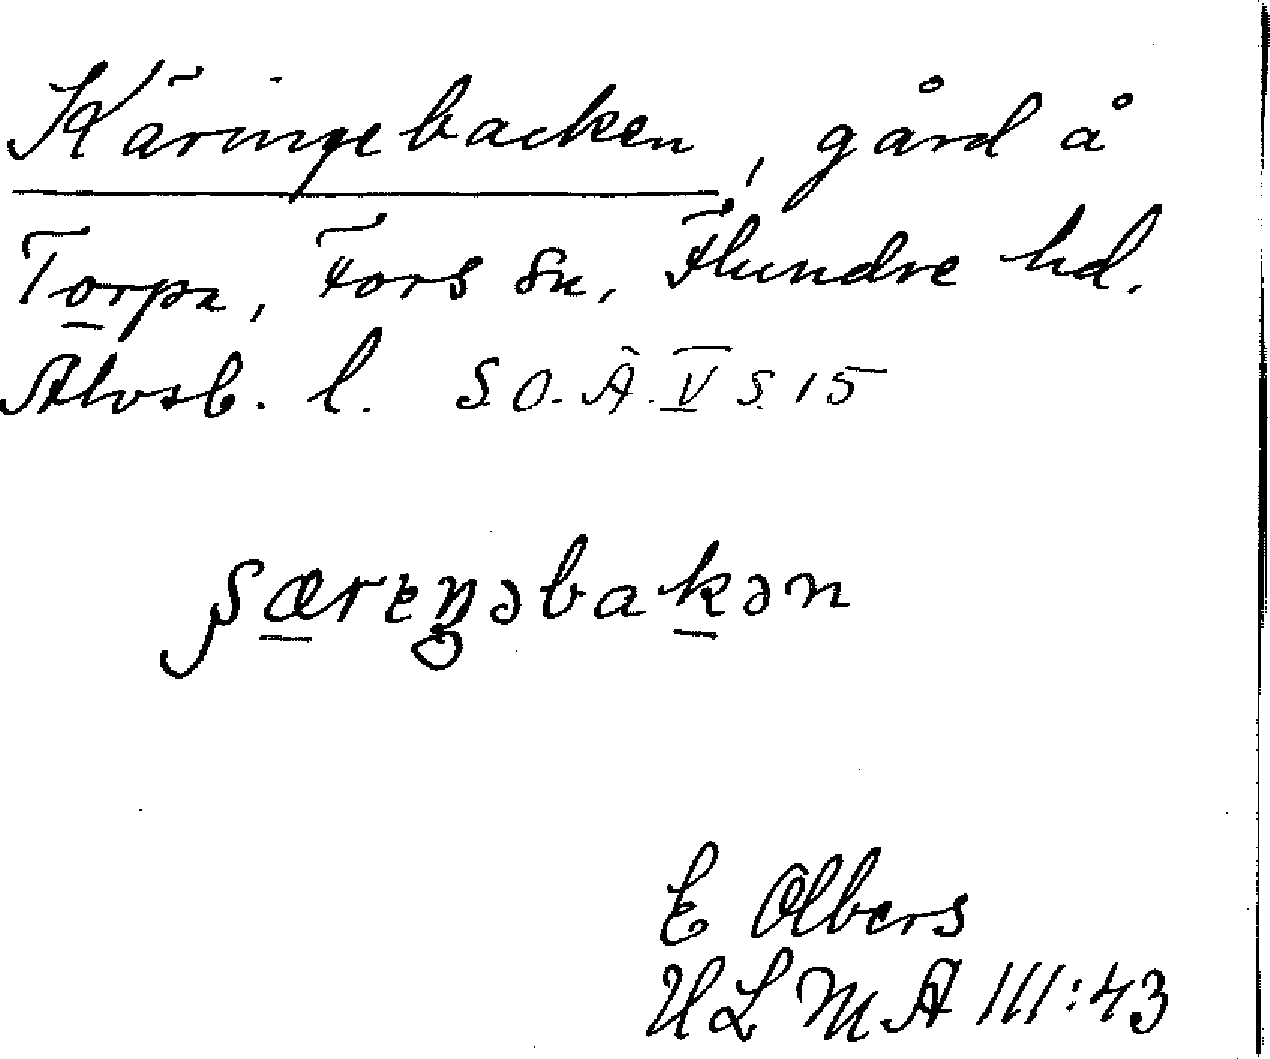 Käringebacken, gård å
Torpa, Fors sn, Flundre hd.
Älvsb. l. S.O.Ä. V s. 15
særıŋəbakən
E Olbers
ULMA 111:43